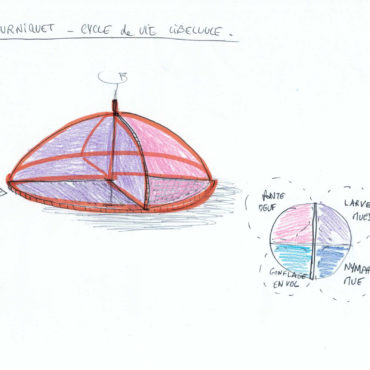 OURNIQUET - CYCLE de VIE LIBELLULE.
PONTE
OEUF
LARVE
MUES
GONFLAGE
EN VOL
NYMPH
MUE